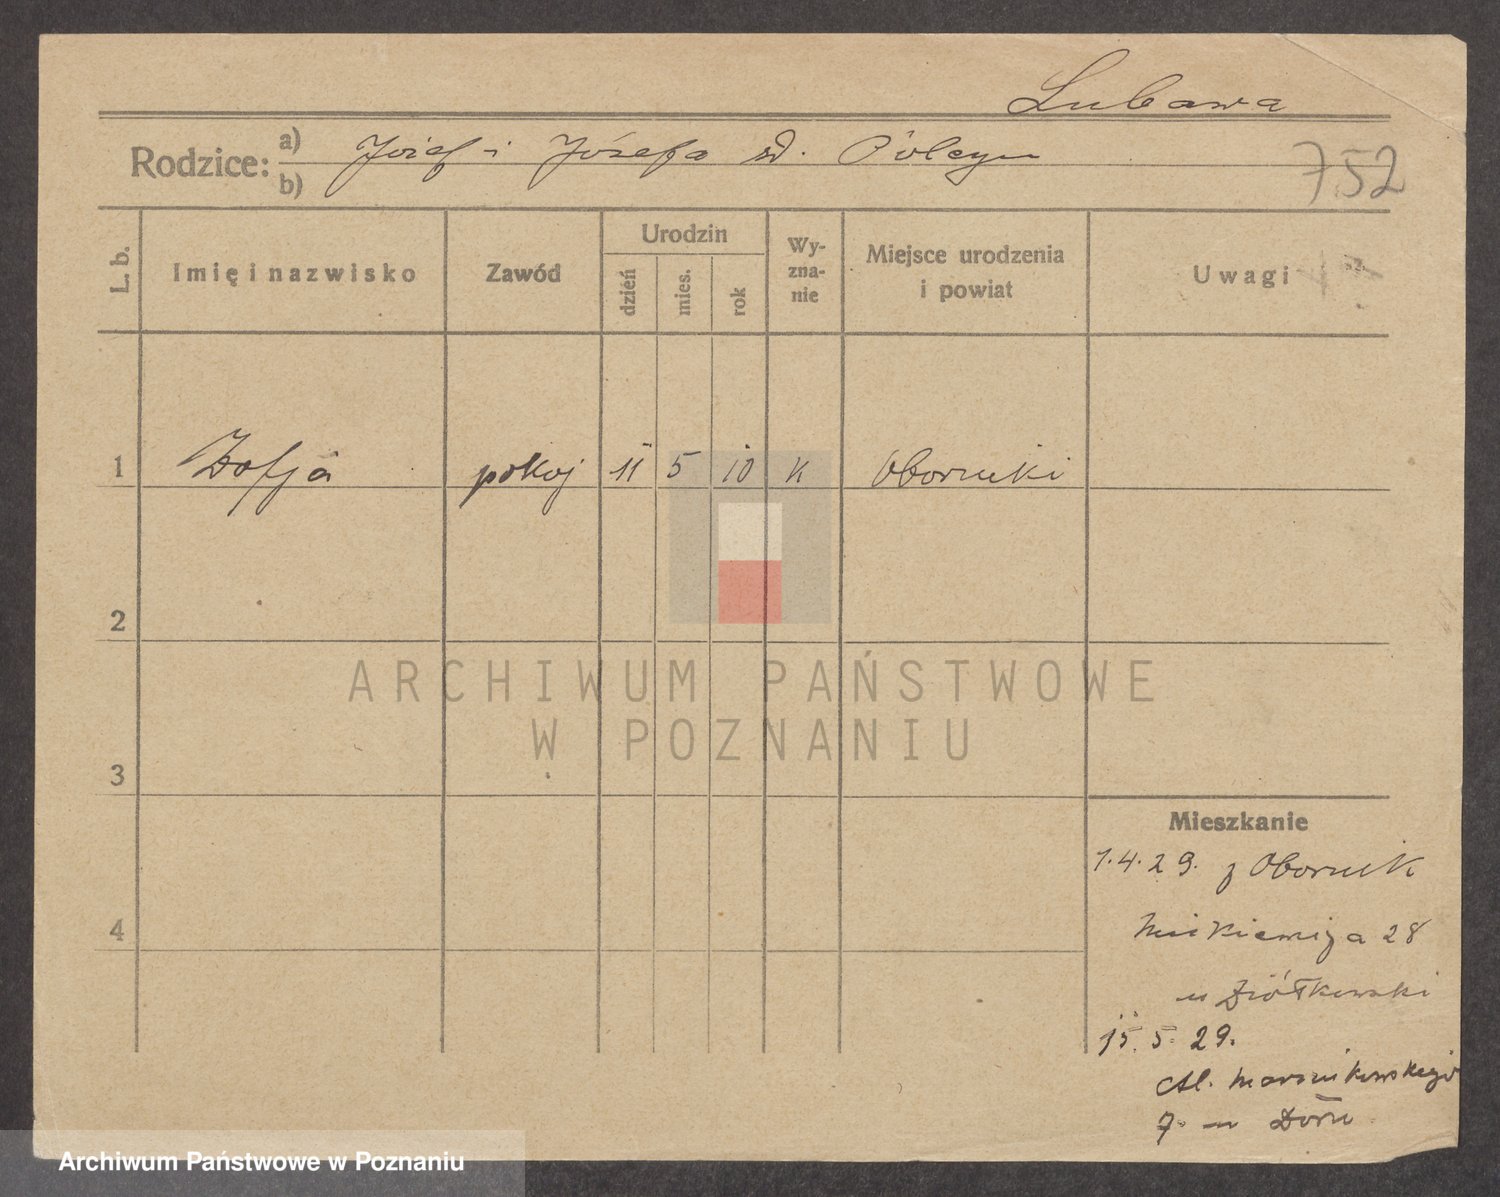 Lubawa
Rodzice: a) Józef i Józefa
b)
752
L. b.
Imię i nazwisko
Zawód
Urodzin
dzień
mies.
rok
Wy-
zna-
nie
Miejsce urodzenia
i powiat
Uwagi
1 Zofja pokoj 11 5 10 K Oborniki
2
3
4
Mieszkanie
1.4.29. z Obornik
Mickiewicza 28
u Ziółkowski
15.5.29.
Al. Marcinkowskiego
7. u
ARCHIWUM PAŃSTWOWE
W POZNANIU
Archiwum Państwowe w Poznaniu